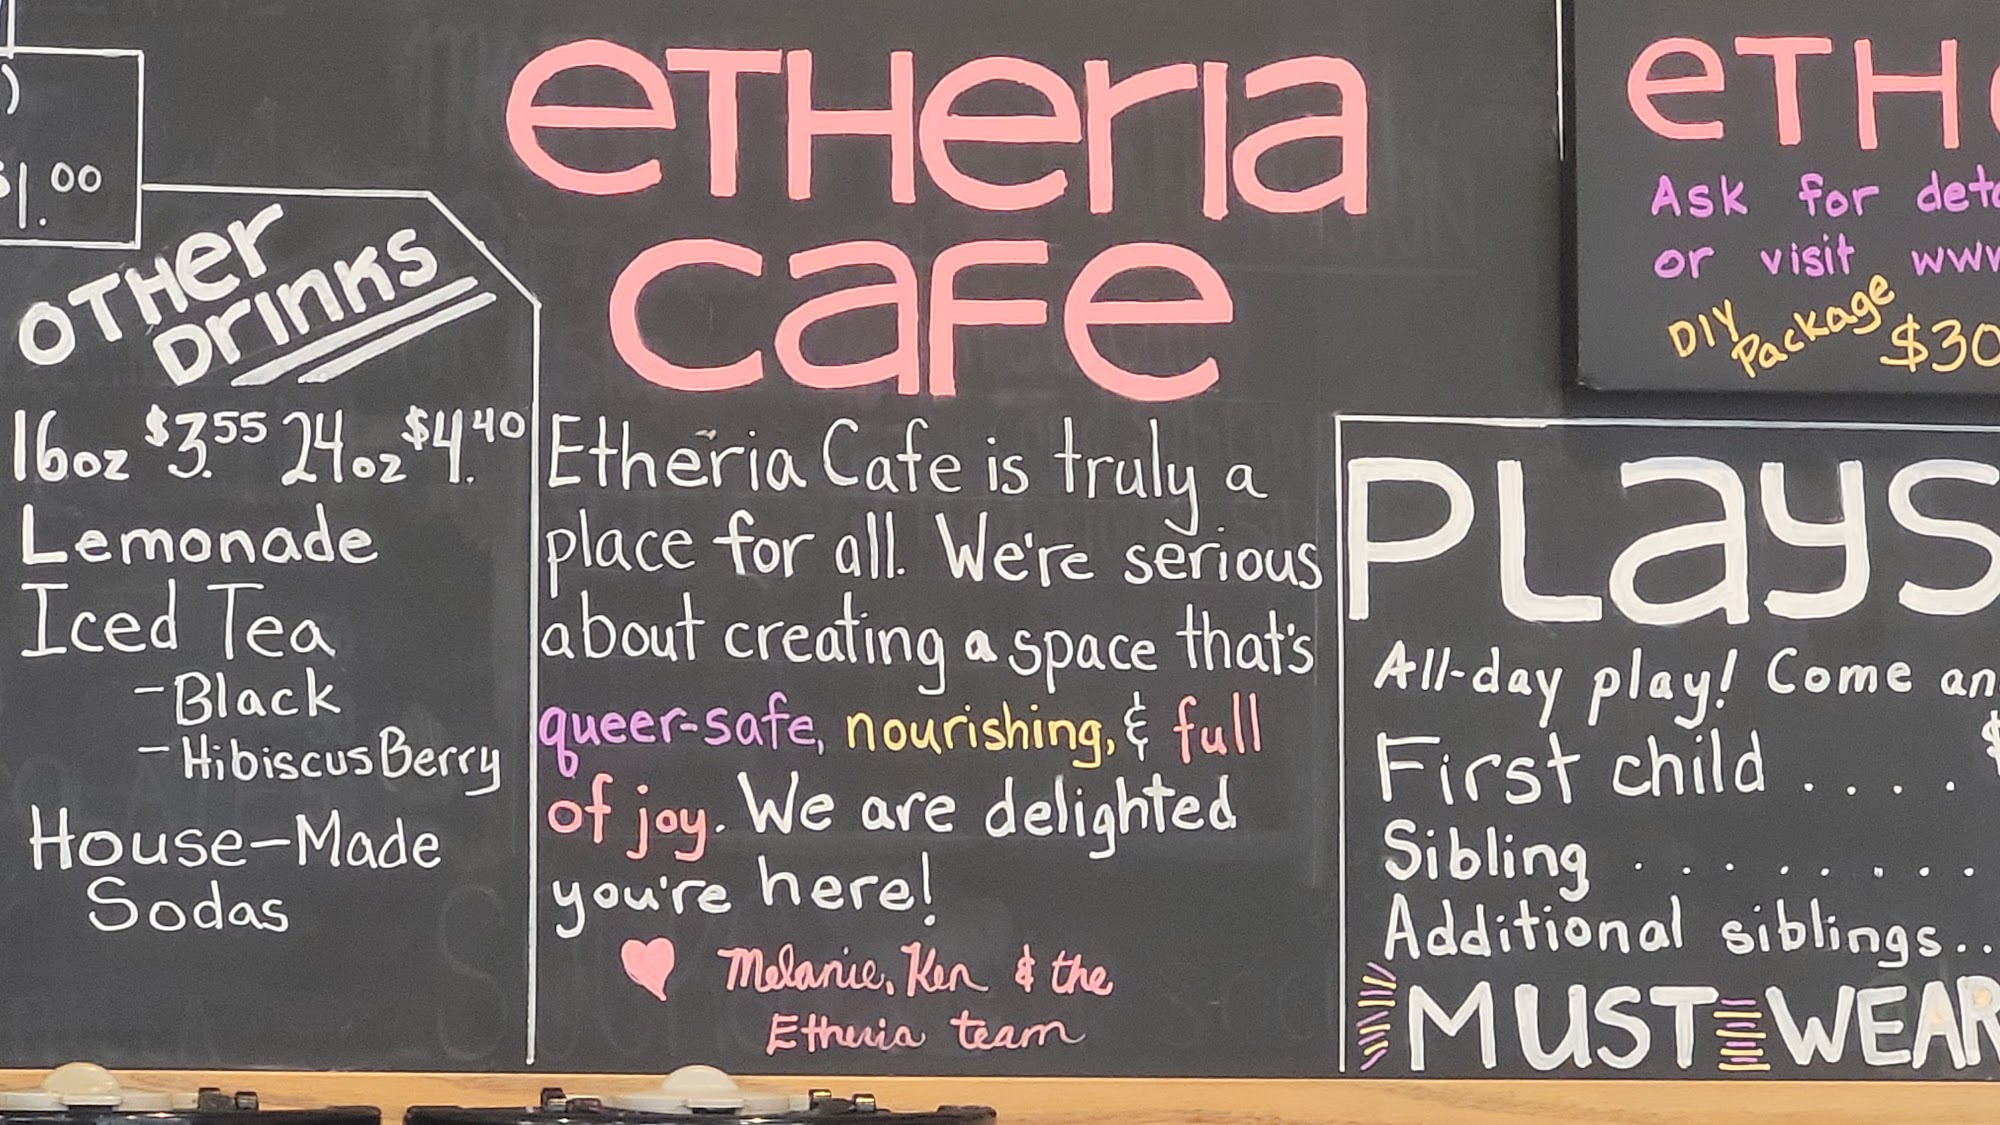 )
$1.00
OTHER
DRINKS
16oz $3.55 24oz $4.40
Lemonade
Iced Tea
- Black
- Hibiscus Berry
House-Made
Sodas
eTHerIa
cafe
Etheria Cafe is truly a
place for all. We're serious
about creating a space that's
queer-safe, nourishing, & full
of joy. We are delighted
you're here!
Melanie, Ken & the
Etheria team
eTHe
Ask for deta
or visit www
DIY
Package $30
PLayS
All-day play! Come an
First child ....
$
Sibling ........
Additional siblings..
MUST WEAR